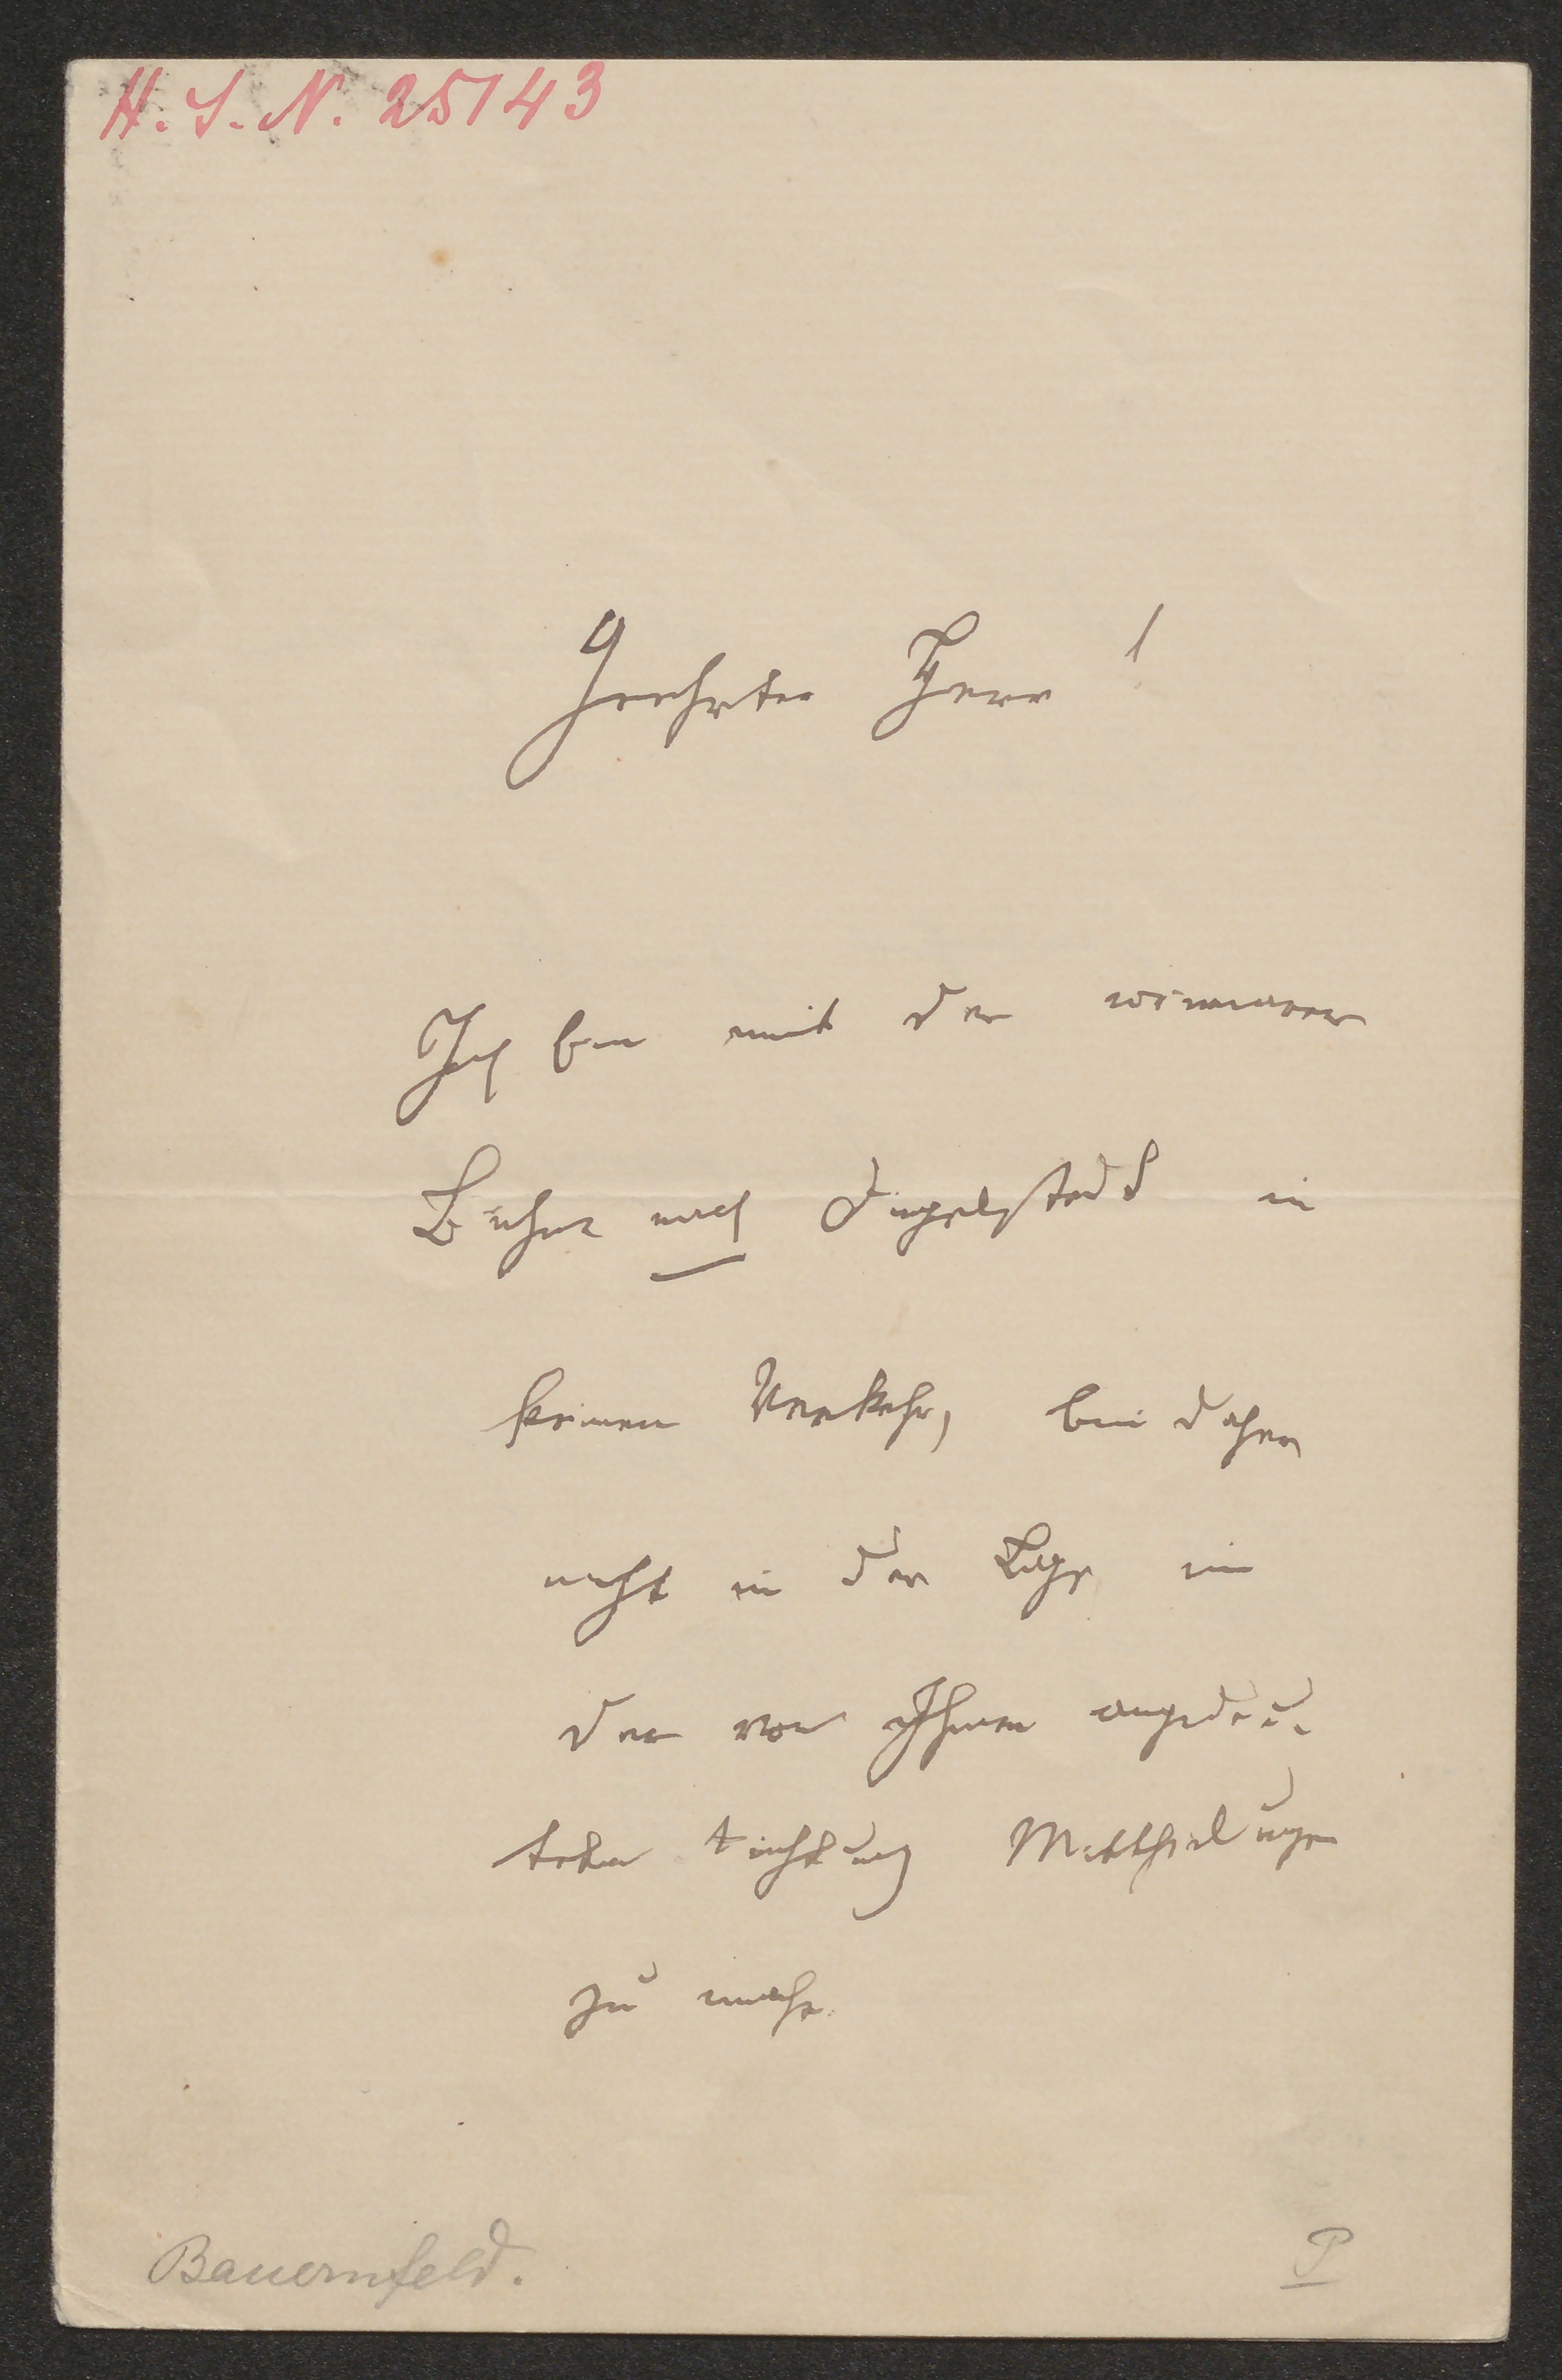 H. I. N. 25143
Geehrter Herr!
Ich bin mit der weimarer
Bühne nach Dingelstedt in
keinen Verkehr, bin daher
nicht in der Lage in
der von Ihnen angedeu-
teten Richtung Mittheilungen
zu machen.
Bauernfeld.
P